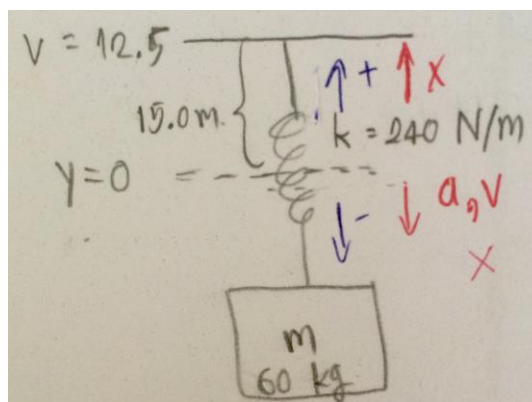 v = 12.5
15.0 m
+
x
k = 240 N/m
y = 0
-
a, v
x
m
60 kg